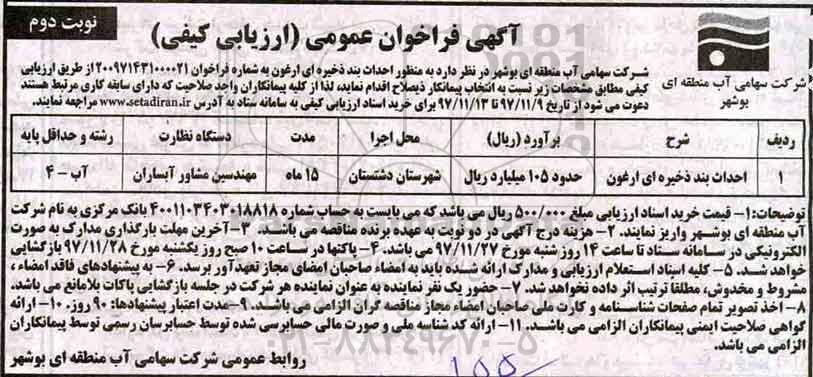 نوبت دوم
آگهی فراخوان عمومی (ارزیابی کیفی)
شرکت سهامی آب منطقه ای
بوشهر
شرکت سهامی آب منطقه ای بوشهر در نظر دارد به منظور احداث بند ذخیره ای ارغون به شماره فراخوان ۲۰۰۹۷۱۴۳۱۰۰۰۰۲۱ از طریق ارزیابی
کیفی مطابق مشخصات زیر نسبت به انتخاب پیمانکار ذیصلاح اقدام نماید، لذا از کلیه پیمانکاران واجد صلاحیت که دارای سابقه کاری مرتبط هستند
دعوت می شود از تاریخ ۹۷/۱۱/۹ تا ۹۷/۱۱/۱۳ برای خرید اسناد ارزیابی کیفی به سامانه ستاد به آدرس www.setadiran.ir مراجعه نمایند.
ردیف شرح برآورد (ریال) محل اجرا مدت دستگاه نظارت رشته و حداقل پایه
۱ احداث بند ذخیره ای ارغون حدود ۱۰۵ میلیارد ریال شهرستان دشتستان ۱۵ ماه مهندسین مشاور آبساران آب - ۴
توضیحات: ۱- قیمت خرید اسناد ارزیابی مبلغ ۵۰۰/۰۰۰ ریال می باشد که می بایست به حساب شماره ۴۰۰۱۱۰۳۴۰۳۰۱۸۸۱۸ بانک مرکزی به نام شرکت
آب منطقه ای بوشهر واریز نمایند. ۲- هزینه درج آگهی در دو نوبت به عهده برنده مناقصه می باشد. ۳- آخرین مهلت بارگذاری مدارک به صورت
الکترونیکی در سامانه ستاد تا ساعت ۱۴ روز شنبه مورخ ۹۷/۱۱/۲۷ می باشد. ۴- پاکتها در ساعت ۱۰ صبح روز یکشنبه مورخ ۹۷/۱۱/۲۸ بازگشایی
خواهد شد. ۵- کلیه اسناد استعلام ارزیابی و مدارک ارائه شده باید به امضاء صاحبان امضای مجاز تعهدآور برسد. ۶- به پیشنهادهای فاقد امضاء،
مشروط و مخدوش، مطلقا ترتیب اثر داده نخواهد شد. ۷- حضور یک نفر نماینده به عنوان نماینده هر شرکت در جلسه بازگشایی پاکات بلامانع می باشد.
۸- اخذ تصویر تمام صفحات شناسنامه و کارت ملی صاحبان امضاء مجاز مناقصه گران الزامی می باشد. ۹- مدت اعتبار پیشنهادها: ۹۰ روز. ۱۰- ارائه
گواهی صلاحیت ایمنی پیمانکاران الزامی می باشد. ۱۱- ارائه کد شناسه ملی و صورت مالی حسابرسی شده توسط حسابرسان رسمی توسط پیمانکاران
الزامی می باشد.
روابط عمومی شرکت سهامی آب منطقه ای بوشهر
۰۲۱-۸۸۳۴۹۶۷۰-۵